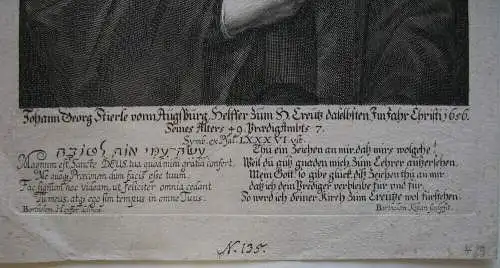 Johann Georg Stierle vonn Augspurg Helffer zum H. Creutz daselbsten Im Jahr Christi 1656.
Seines Alters 49. Predigtambts 7.
Symb. ex Psal. LXXXVI. vlt.
עשה עמי אות לטובה
Magnum est Sancte DEUS tua quod mihi gratia confert,
Me quoq; Præconem dum facis esse tuum.
Fac signum hoc videam, ut feliciter omnia cedant
Tu meus, atq; ego sim tempus in omne Tuus.
Thu ein Zeichen an mir daß mirs wolgehe!
Weil du auß gnaden mich zum Lehrer außerlesen,
Mein Gott! so gibe glück diß Zeichen thu an mir
daß ich dein Prediger verbleibe für und für,
So werd ich Seiner Kirch zum Creutze wol fürstehen.
Barthol. Hopffer
Bartholom. Kilian sculpsit.
N. 135.